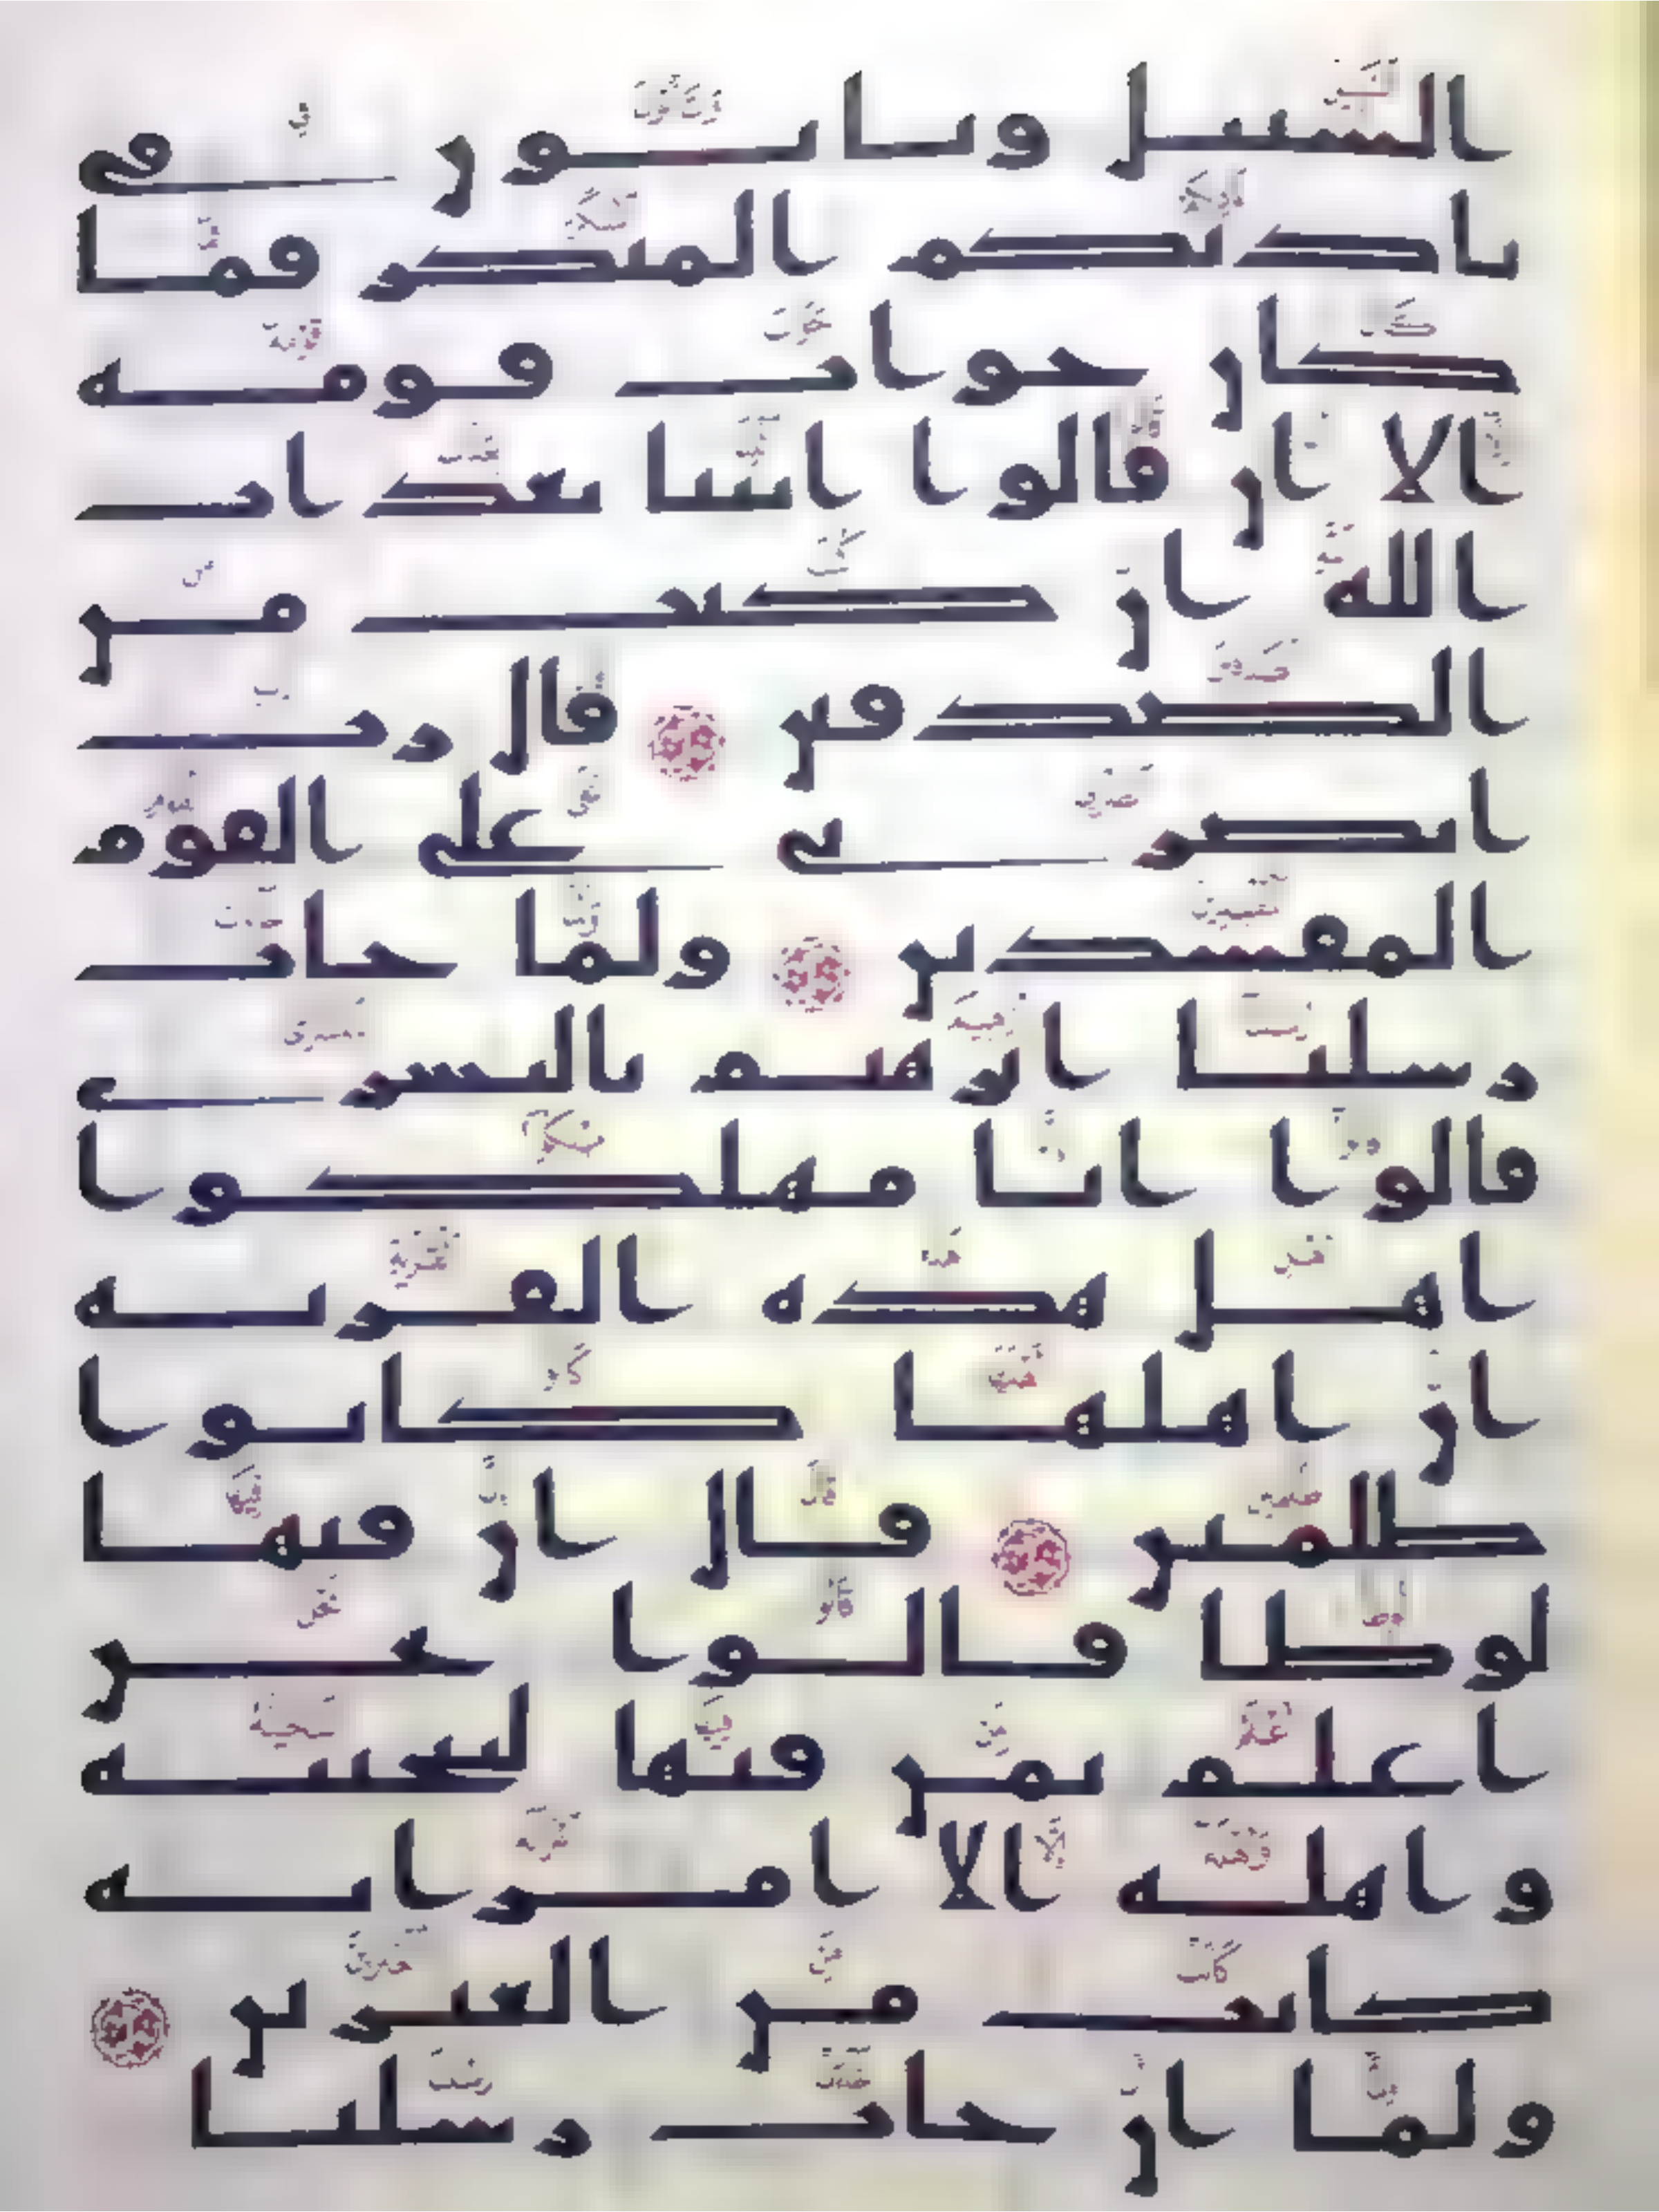 السبيل وتاتون في
ناديكم المنكر فما
كان جواب قومه
الا ان قالوا ائتنا بعذاب
الله ان كنت من
الصدقين قال رب
انصرني على القوم
المفسدين ولما جات
رسلنا ابرهيم بالبشرى
قالوا انا مهلكوا
اهل هذه القرية
ان اهلها كانوا
ظلمين قال ان فيها
لوطا قالوا نحن
اعلم بمن فيها لننجينه
واهله الا امراته
كانت من الغبرين
ولما ان جات رسلنا